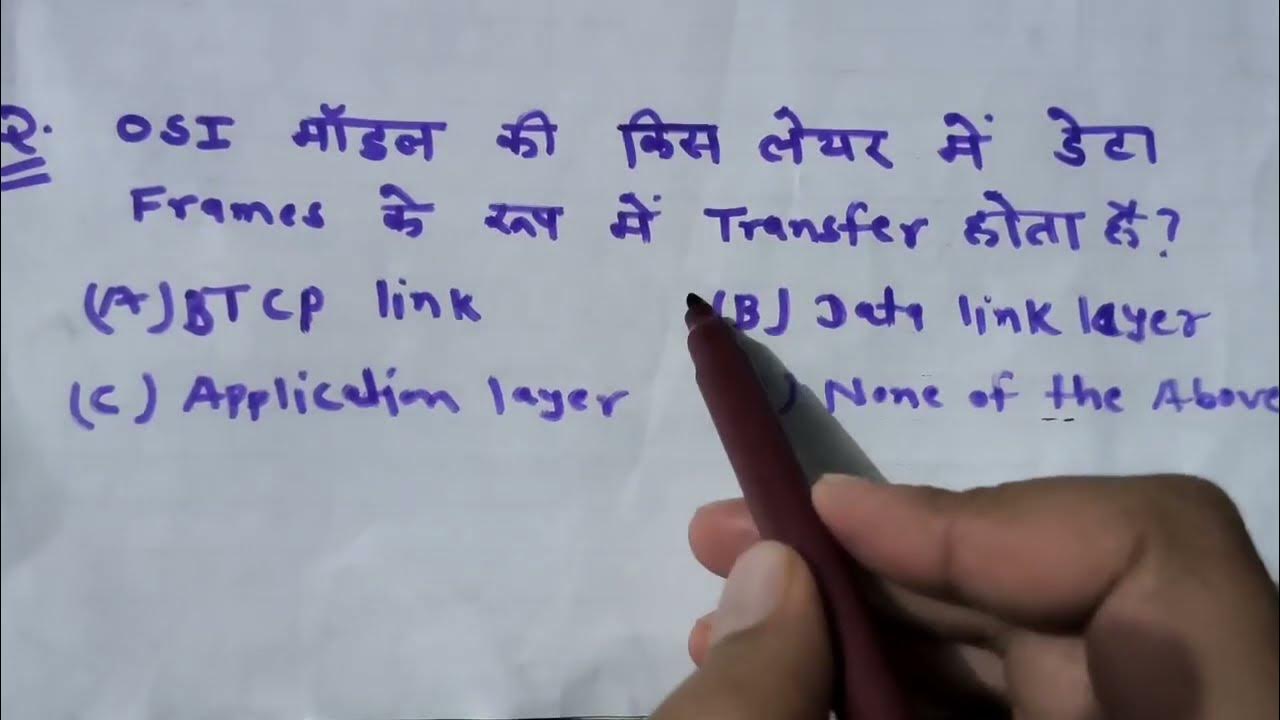 Q. OSI मॉडल की किस लेयर में डेटा
Frames के रूप में Transfer होता है?
(A) BTCP link (B) Data link layer
(C) Application layer ) None of the Above